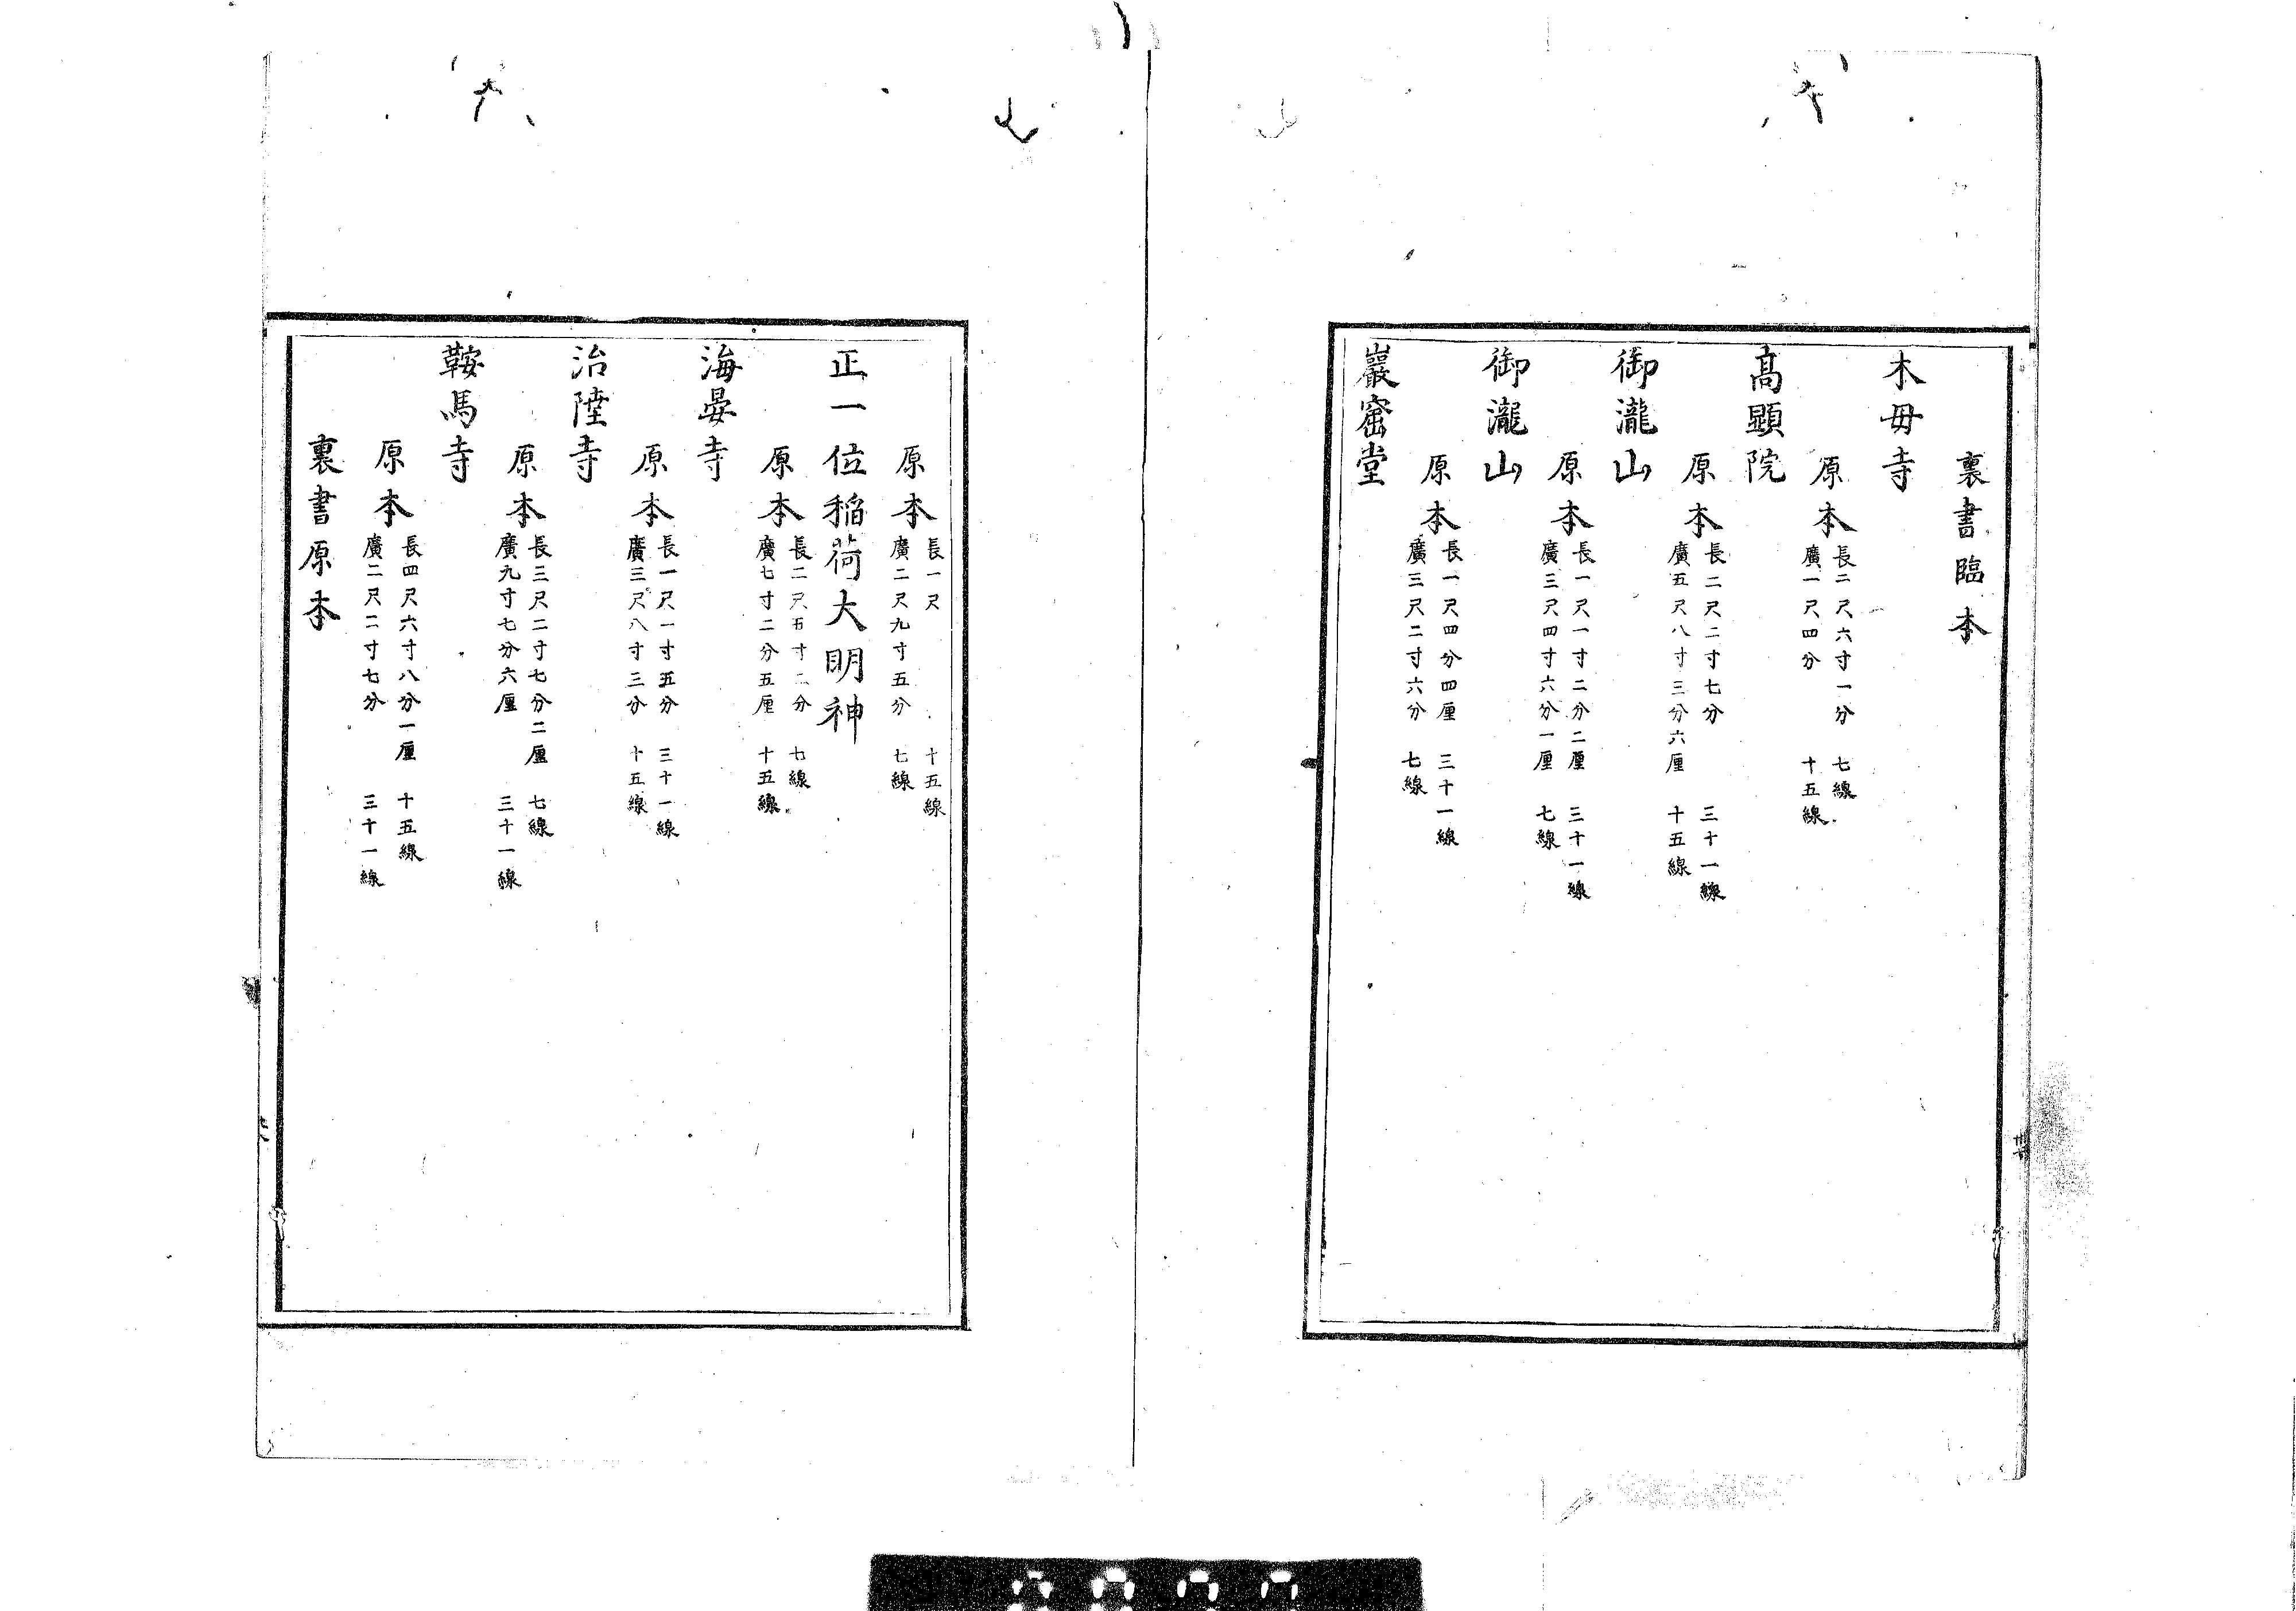 裏書臨本
木毋寺
原本長二尺六寸一分　七線
廣一尺四分　十五線
髙顯院
原本長二尺二寸七分　三十一線
廣五尺八寸三分六厘　十五線
御瀧山
原本長一尺一寸二分二厘　三十一線
廣三尺四寸六分一厘　七線
御瀧山
原本長一尺四分四厘　三十一線
廣三尺二寸六分　七線
巖窟堂
原本長一尺　十五線
廣二尺九寸五分　七線
正一位稲荷大明神
原本長二尺五寸二分　七線
廣七寸二分五厘　十五線
海晏寺
原本長一尺一寸五分　三十一線
廣三尺八寸三分　十五線
治陸寺
原本長三尺二寸七分二厘　七線
廣九寸七分六厘　三十一線
鞍馬寺
原本長四尺六寸八分一厘　十五線
廣二尺二寸七分　三十一線
裏書原本